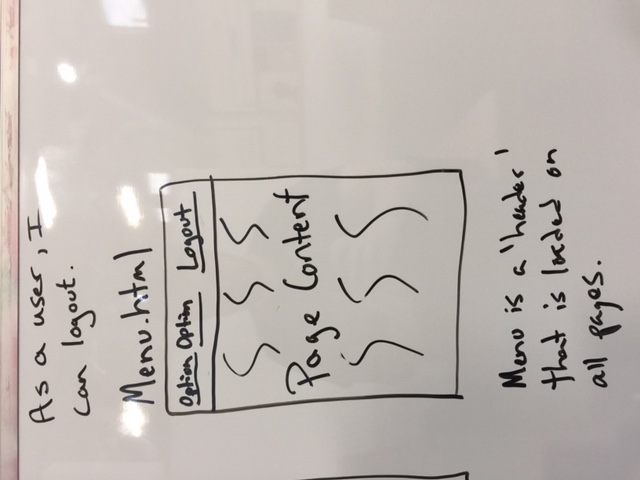 As a user, I
can logout.
Menu.html
Option Option Logout
Page Content
Menu is a 'header'
that is loaded on
all pages.